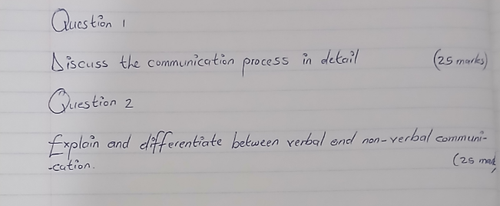 Question 1
Discuss the communication process in detail (25 marks)
Question 2
Explain and differentiate between verbal and non-verbal communi-
-cation. (25 mark